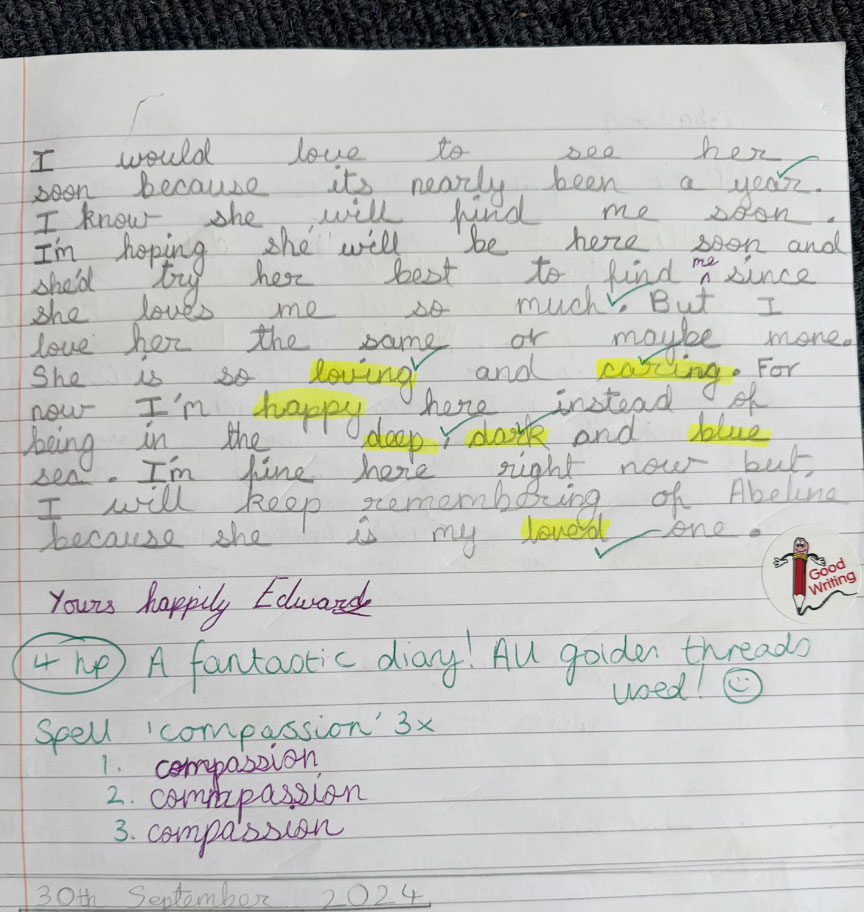 I would love to see her
soon because its nearly been a year.
I know she will find me soon.
I'm hoping she will be here soon and
she'd try her best to find me since
she loves me so much. But I
love her the same or maybe more.
She is so loving and caring. For
now I'm happy here instead of
being in the deep, dark and blue
sea. I'm fine here right now but,
I will keep remembering of Abeline
because she is my loved one.
Good
Writing
Yours happily Edward
4 hp A fantastic diary! All golden threads
used!
Spell 'compassion' 3x
1. compassion
2. commpassion
3. compassion
30th September 2024